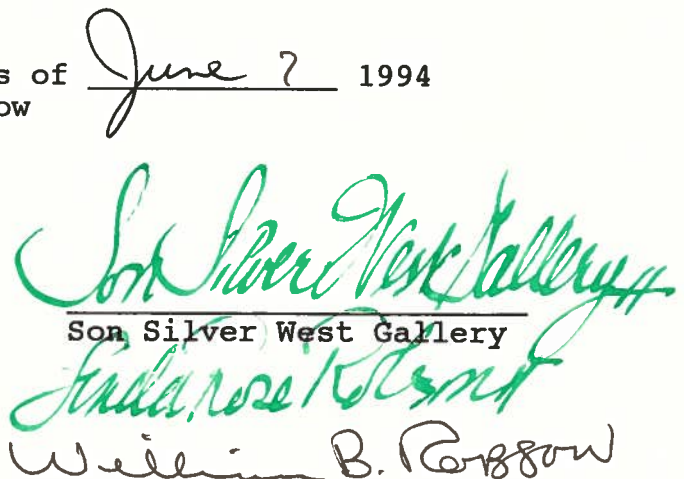 s of June 7 1994
ow
Son Silver West Gallery
Son Silver West Gallery
Linda Rose Robson
William B. Robson